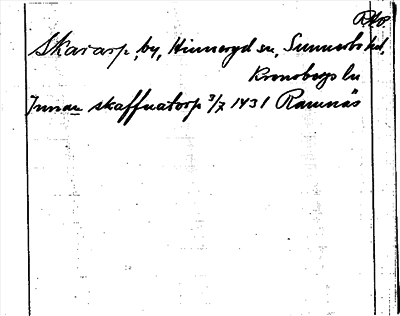 RAp.
Skararp, by, Hinneryd sn, Sunnerbo hd,
Kronobergs ln
Jnnan skaffnatorp 3/7 1431 Ramnäs